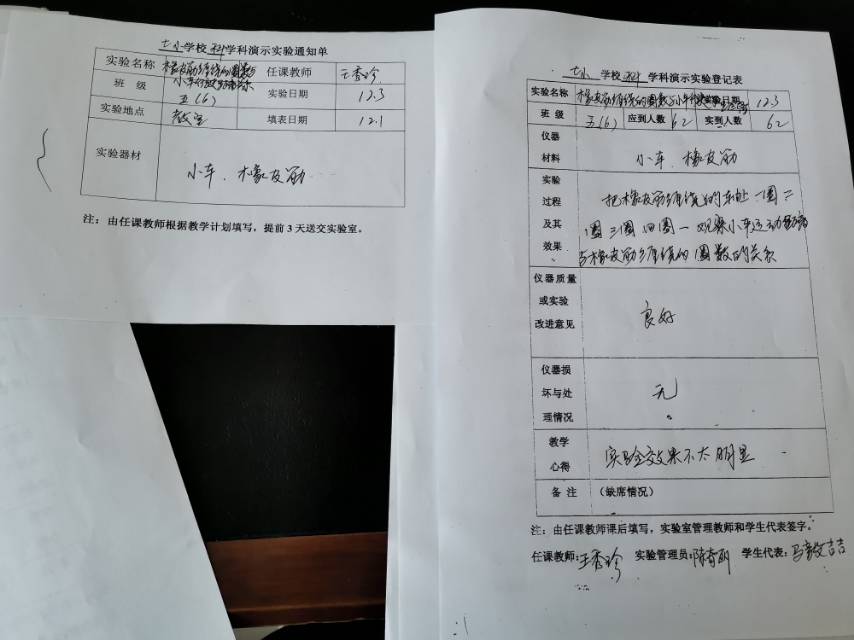 七小学校 科 学科演示实验通知单
实验名称 橡皮筋缠绕的圈数与 任课教师 王秀珍
小车行驶距离的关系
班 级 五(6) 实验日期 12.3
实验地点 教室 填表日期 12.1
实验器材 小车、橡皮筋
注：由任课教师根据教学计划填写，提前3天送交实验室。
七小 学校 科 学科演示实验登记表
实验名称 橡皮筋缠绕的圈数与小车 实验日期 12.3
班 级 五(6) 应到人数 62 实到人数 62
仪器
材料 小车、橡皮筋
实验
过程 把橡皮筋缠绕的 一圈二
及其 圈三圈四圈一观察小车运动
效果 与橡皮筋缠绕的圈数的关系
仪器质量
或实验 良好
改进意见
仪器损
坏与处 无
理情况
教学
心得 实验效果不太明显
备 注 （缺席情况）
注：由任课教师课后填写，实验室管理教师和学生代表签字。
任课教师：王秀珍 实验管理员：陈 学生代表：马